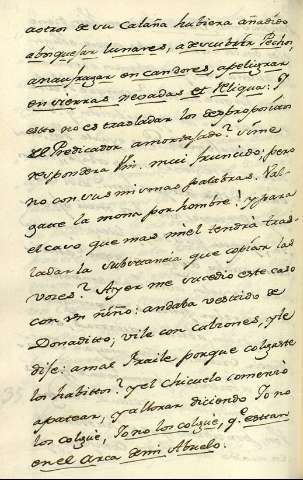 aotros de su calaña hubiera añadido
abosquejar lunares, adescubrir Pechos,
anaufragar en candores, apeligrar
en sierras nevadas et Reliqua: y
esto no es trasladar los despropositos
el Predicador amortajado? Sime
respondera Vm. mui fruncido; pero
no con sus mismas palabras. Val-
gate la mona por hombre! y para
el caso que mas miel tendrà tras-
ladar la substancia que copiar las
voces? Ayer me sucedio este caso
con un niño: andaba vestido de
Donadito; vile con calzones, y le
dije: amas Fraile porque colgaste
los habittos? y el chicuelo comenzò
apatear, y allorar diciendo Io no
los colguè, Io no los colguè, q.e estan
en el Arca demi Abuelo: